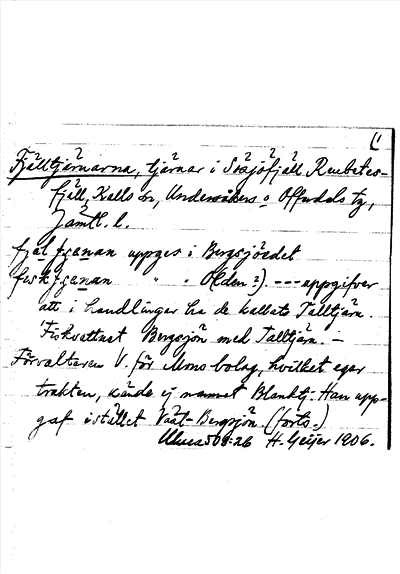 (1
Fjälltjärnarna, tjärnar i Sösjöfjäll, Renbetes-
fjäll, Kalls sn, Undersåkers o Offerdals tg,
Jämtl. l.
fjäl tjanan uppges i Bergsjöedet
fisktjanan " " Olden 2). --- uppgifver
att i handlingar ha de kallats Talltjärn.
"Fiskvattnet Bergsjön med Talltjärn. –
Förvaltaren V. för Mons bolag, hvilket eger
trakten, kände ej namnet Blanktj. Han upp-
gaf istället Väst-Bergsjön. (forts.)
Ulma 501:26 H. Geijer 1906.